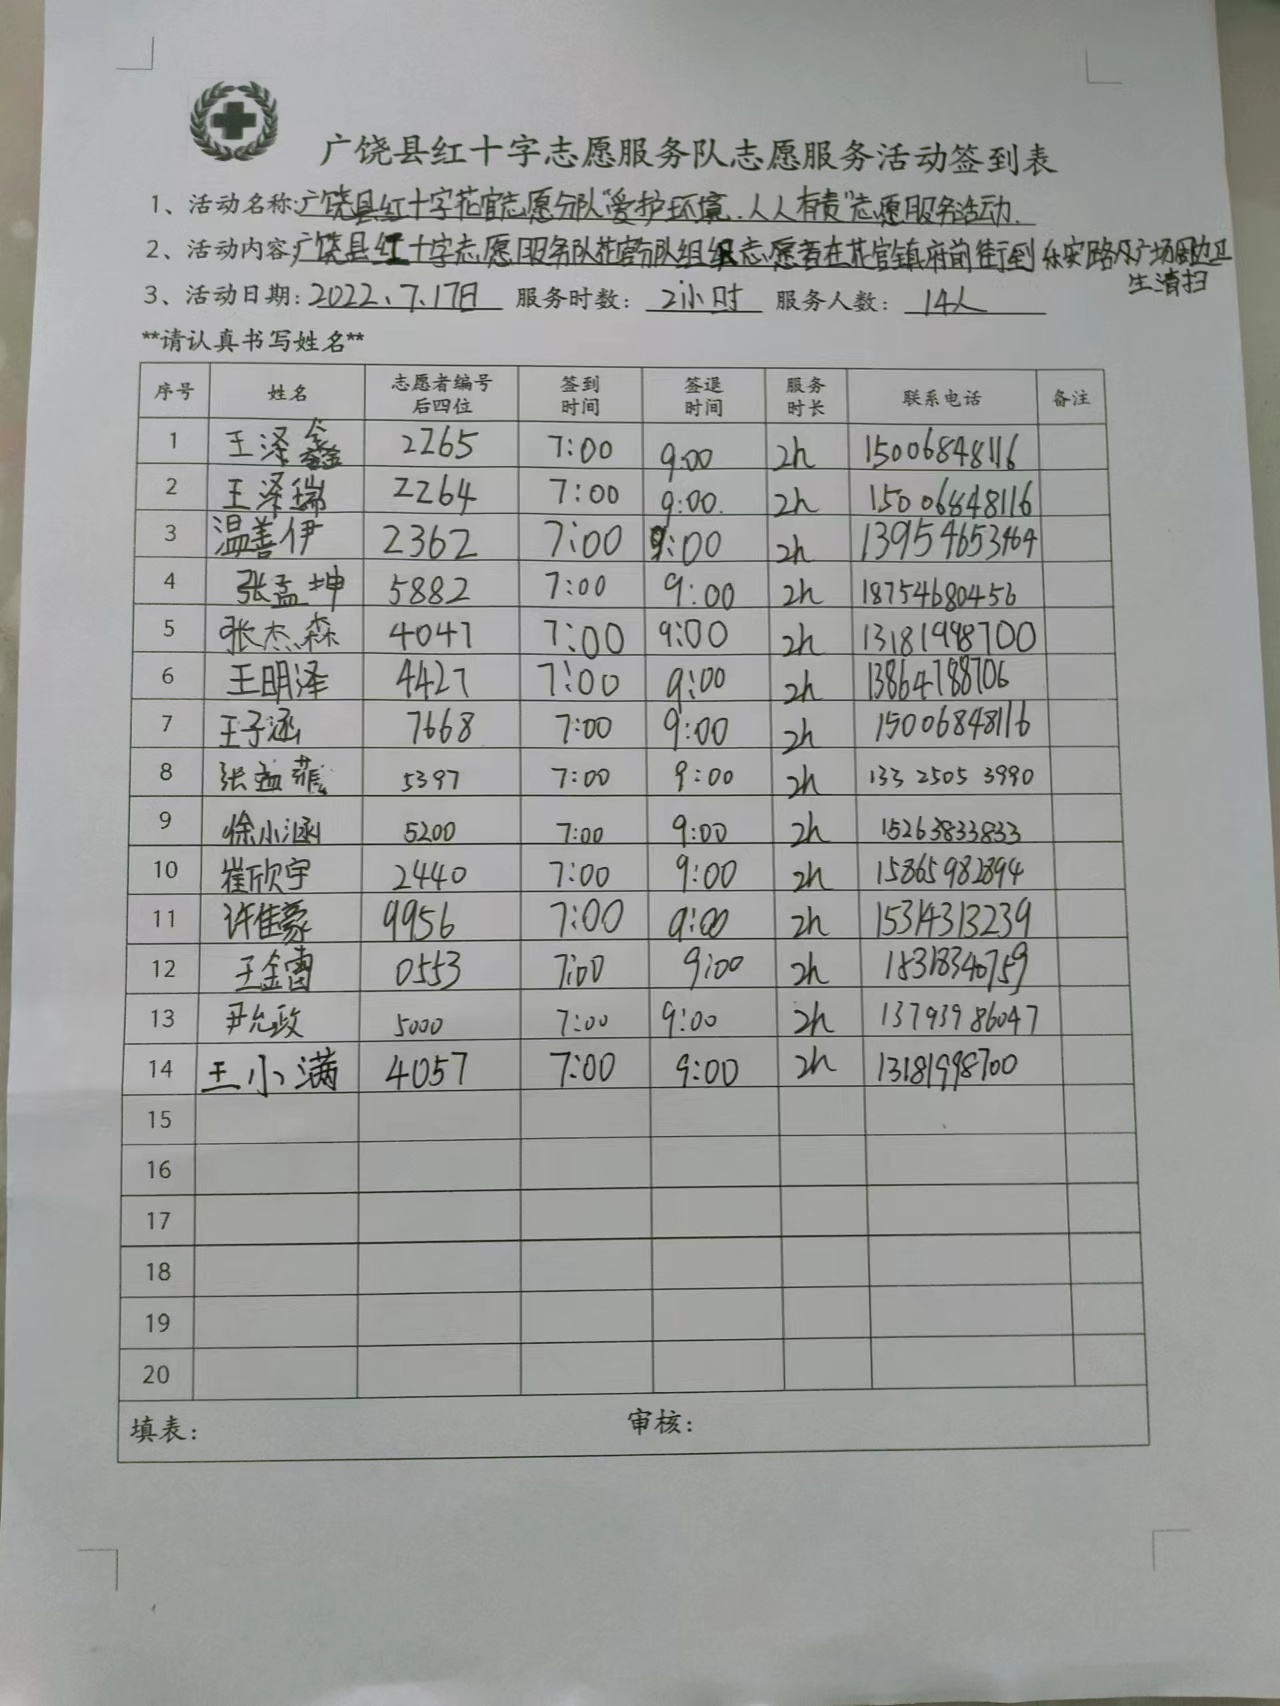 广饶县红十字志愿服务队志愿服务活动签到表
1、活动名称:广饶县红十字花官志愿分队“爱护环境.人人有责”志愿服务活动.
2、活动内容:广饶县红十字志愿服务队花官分队组织志愿者在花官镇府前街到乐安路及广场周边卫
生清扫
3、活动日期:2022.7.17日 服务时数: 2小时 服务人数: 14人
**请认真书写姓名**
序号 姓名 志愿者编号后四位 签到时间 签退时间 服务时长 联系电话 备注
1 王泽鑫 2265 7:00 9:00 2h 15006848116
2 王泽瑞 2264 7:00 9:00. 2h 15006848116
3 温善伊 2362 7:00 9:00 2h 13954653464
4 张孟坤 5882 7:00 9:00 2h 18754680456
5 张杰森 4047 7:00 9:00 2h 13181998700
6 王明泽 4427 7:00 9:00 2h 13864788706
7 王子涵 7668 7:00 9:00 2h 15006848116
8 张孟菲 5397 7:00 9:00 2h 133 2505 3990
9 徐小涵 5200 7:00 9:00 2h 15263833833
10 崔欣宇 2440 7:00 9:00 2h 15865982894
11 许佳豪 9956 7:00 9:00 2h 15314313239
12 王金雷 0553 7:00 9:00 2h 18318340759
13 尹允政 5000 7:00 9:00 2h 13793986047
14 王小满 4057 7:00 9:00 2h 13181998700
15
16
17
18
19
20
填表: 审核: